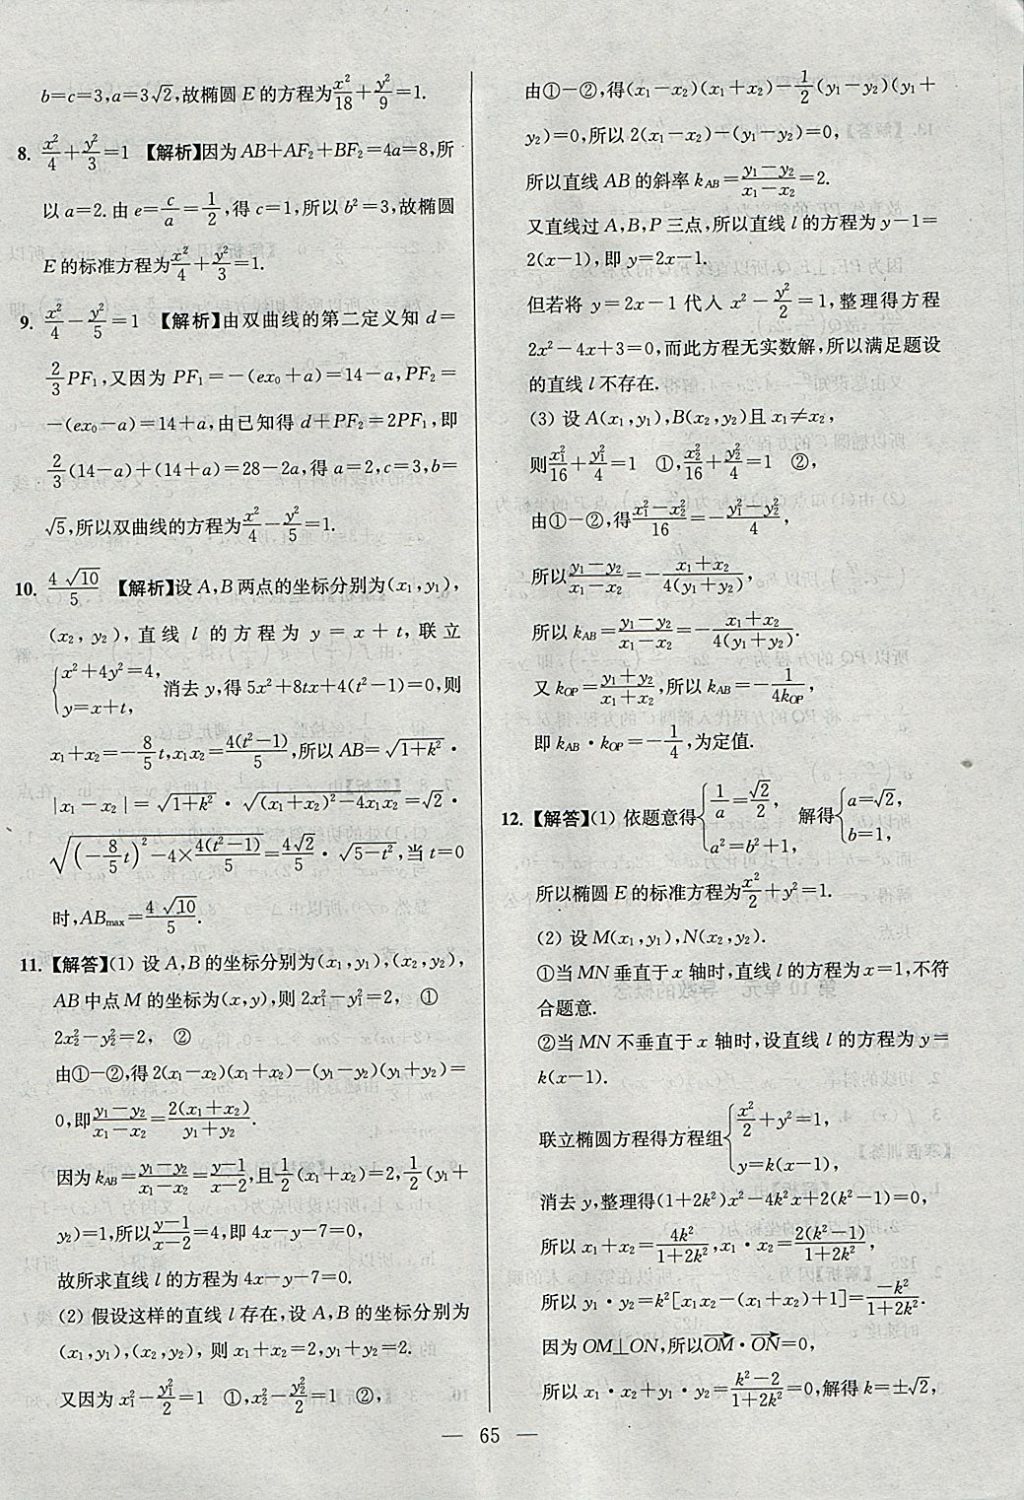 b=c=3,a=3√2,故椭圆E的方程为x²/18+y²/9=1.
8. x²/4+y²/3=1 【解析】因为AB+AF₂+BF₂=4a=8,所
以a=2.由e=c/a=1/2,得c=1,所以b²=3,故椭圆
E的标准方程为x²/4+y²/3=1.
9. x²/4-y²/5=1 【解析】由双曲线的第二定义知d=
2/3PF₁,又因为PF₁=-(ex₀+a)=14-a,PF₂=
-(ex₀-a)=14+a,由已知得d+PF₂=2PF₁,即
2/3(14-a)+(14+a)=28-2a,得a=2,c=3,b=
√5,所以双曲线的方程为x²/4-y²/5=1.
10. 4√10/5 【解析】设A,B两点的坐标分别为(x₁,y₁),
(x₂,y₂),直线l的方程为y=x+t,联立
{x²+4y²=4,
y=x+t, 消去y,得5x²+8tx+4(t²-1)=0,则
x₁+x₂=-8/5t,x₁x₂=4(t²-1)/5,所以AB=√(1+k²)·
|x₁-x₂|=√(1+k²)·√((x₁+x₂)²-4x₁x₂)=√2·
√((-8/5t)²-4×4(t²-1)/5)=4√2/5·√(5-t²),当t=0
时,ABmax=4√10/5.
11.【解答】(1) 设A,B的坐标分别为(x₁,y₁),(x₂,y₂),
AB中点M的坐标为(x,y),则2x₁²-y₁²=2, ①
2x₂²-y₂²=2, ②
由①-②,得2(x₁-x₂)(x₁+x₂)-(y₁-y₂)(y₁+y₂)=
0,即(y₁-y₂)/(x₁-x₂)=2(x₁+x₂)/(y₁+y₂).
因为k_AB=(y₁-y₂)/(x₁-x₂)=(y-1)/(x-2),且1/2(x₁+x₂)=4,1/2(y₁+
y₂)=1,所以(y-1)/(x-2)=4,即4x-y-7=0.
故所求直线l的方程为4x-y-7=0.
(2) 假设这样的直线l存在,设A,B的坐标分别为
(x₁,y₁),(x₂,y₂),则x₁+x₂=2,y₁+y₂=2.
又因为x₁²-y₁²/2=1 ①,x₂²-y₂²/2=1 ②,
由①-②,得(x₁-x₂)(x₁+x₂)-1/2(y₁-y₂)(y₁+
y₂)=0,所以2(x₁-x₂)-(y₁-y₂)=0,
所以直线AB的斜率k_AB=(y₁-y₂)/(x₁-x₂)=2.
又直线过A,B,P三点,所以直线l的方程为y-1=
2(x-1),即y=2x-1.
但若将y=2x-1代入x²-y²/2=1,整理得方程
2x²-4x+3=0,而此方程无实数解,所以满足题设
的直线l不存在.
(3) 设A(x₁,y₁),B(x₂,y₂)且x₁≠x₂,
则x₁²/16+y₁²/4=1 ①,x₂²/16+y₂²/4=1 ②,
由①-②,得(x₁²-x₂²)/16=-(y₁²-y₂²)/4,
所以(y₁-y₂)/(x₁-x₂)=-(x₁+x₂)/4(y₁+y₂),
所以k_AB=(y₁-y₂)/(x₁-x₂)=-(x₁+x₂)/4(y₁+y₂).
又k_OP=(y₁+y₂)/(x₁+x₂),所以k_AB=-1/4k_OP,
即k_AB·k_OP=-1/4,为定值.
12.【解答】(1) 依题意得{1/a=√2/2, 解得{a=√2,
a²=b²+1, b=1,
所以椭圆E的标准方程为x²/2+y²=1.
(2) 设M(x₁,y₁),N(x₂,y₂).
①当MN垂直于x轴时,直线l的方程为x=1,不符
合题意.
②当MN不垂直于x轴时,设直线l的方程为y=
k(x-1).
联立椭圆方程得方程组{x²/2+y²=1,
y=k(x-1),
消去y,整理得(1+2k²)x²-4k²x+2(k²-1)=0,
所以x₁+x₂=4k²/(1+2k²),x₁·x₂=2(k²-1)/(1+2k²).
所以y₁·y₂=k²[x₁x₂-(x₁+x₂)+1]=-k²/(1+2k²).
因为OM⊥ON,所以OM→·ON→=0,
所以x₁·x₂+y₁·y₂=(k²-2)/(1+2k²)=0,解得k=±√2,
— 65 —